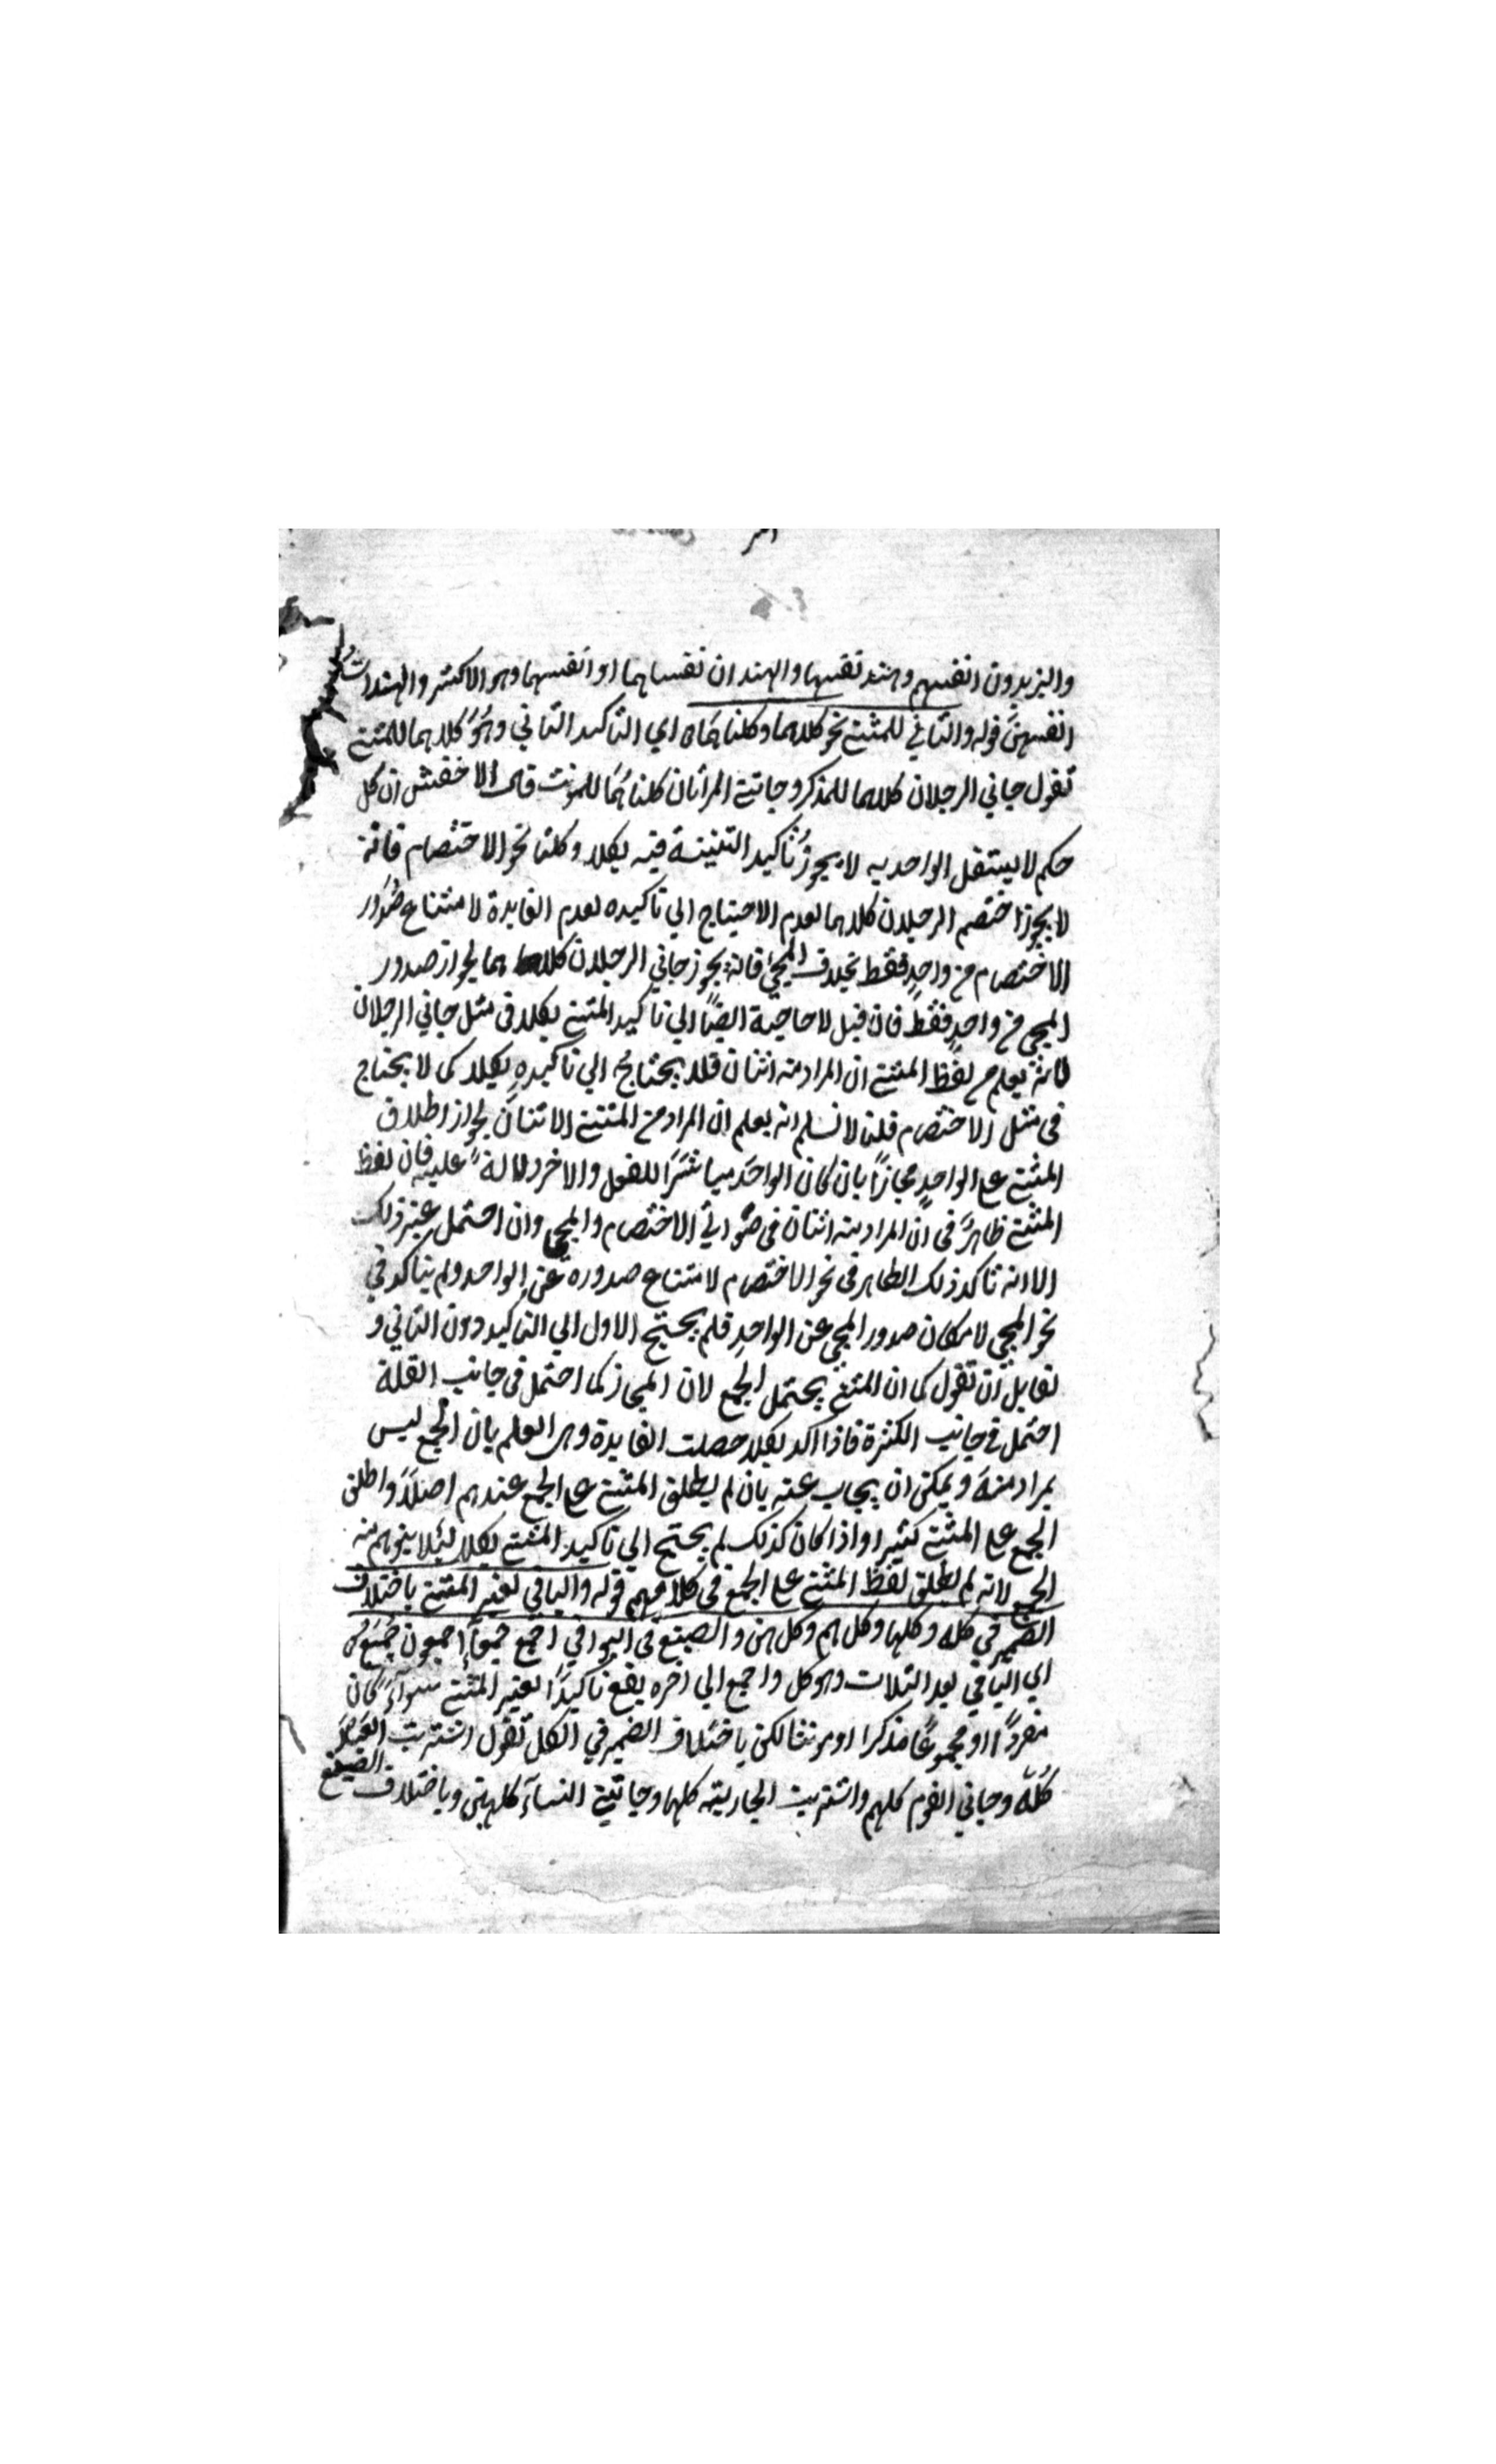 والزيدون انفسهم وهند نفسها والهندان نفساهما او انفسهما وهو الاكثر والهندات
انفسهن قوله والثاني للمثنى نحو كلاهما وكلتاهما اي التاكيد الثاني وهو كلاهما للمثنى
تقول جاني الرجلان كلاهما للمذكر وجاتني المرأتان كلتاهما للمونث قال الاخفش ان كل
حكم لا يستقل الواحد به لا يجوز تأكيد التثنية فيه بكلا وكلتا نحو الاختصام فانه
لا يجوز اختصم الرجلان كلاهما لعدم الاحتياج الي تاكيده لعدم الفايدة لامتناع صدور
الاختصام من واحد فقط بخلاف المجئ فانه يجوز جاني الرجلان كلاهما لجواز صدور
المجي من واحد فقط فان قيل لا حاجة ايضًا الي تاكيد المثنى بكلا في مثل جاني الرجلان
فانه يعلم من لفظ المثنى ان المراد منه اثنان فلا يحتاج الي تاكيده بكلا كما لا يحتاج
في مثل الاختصام قلنا لا نسلم انه يعلم ان المراد من المثنى الاثنان لجواز اطلاق
المثنى على الواحد مجازًا بان كان الواحد مباشرًا للفعل والاخر دلالة عليه فان لفظ
المثنى ظاهر في ان المراد منه اثنان في صورتي الاختصام والمجي وان احتمل غير ذلك
الا انه تاكد ذلك الظاهر في نحو الاختصام لامتناع صدوره عن الواحد ولم يتاكد في
نحو المجي لامكان صدور المجي عن الواحد فلم يحتج الاول الي التاكيد دون الثاني و
لقايل ان تقول كما ان المثنى يحتمل الجمع لان المجاز كما احتمل في جانب القلة
احتمل في جانب الكثرة فاذا اكد بكلا حصلت الفايدة وهى العلم بان الجمع ليس
بمراد منه ويمكن ان يجاب عنه بان لم يطلق المثنى على الجمع عندهم اصلًا واطلق
الجمع على المثنى كثيرا واذا كان كذلك لم يحتج الي تاكيد المثنى بكلا لئلا يتوهم منه
الجمع لانه لم يطلق لفظ المثنى على الجمع في كلامهم قوله والباقي لغير المثنى باختلاف
الضمير في كله وكلها وكلهم وكلهن والصيغ في البواقي اجمع جمعآ اجمعون جُمَع
اي الباقي بعد الثلاث وهو كل واجمع الي اخره يقع تاكيدًا لغير المثنى سوآء كان
مفردًا او مجموعًا مذكرا او مونثا لكن باختلاف الضمير في الكل تقول اشتريت العبد
كُلّه وجاني القوم كلهم واشتريت الجارية كلها وجاتني النسآء كلهن وباختلاف الصيغ